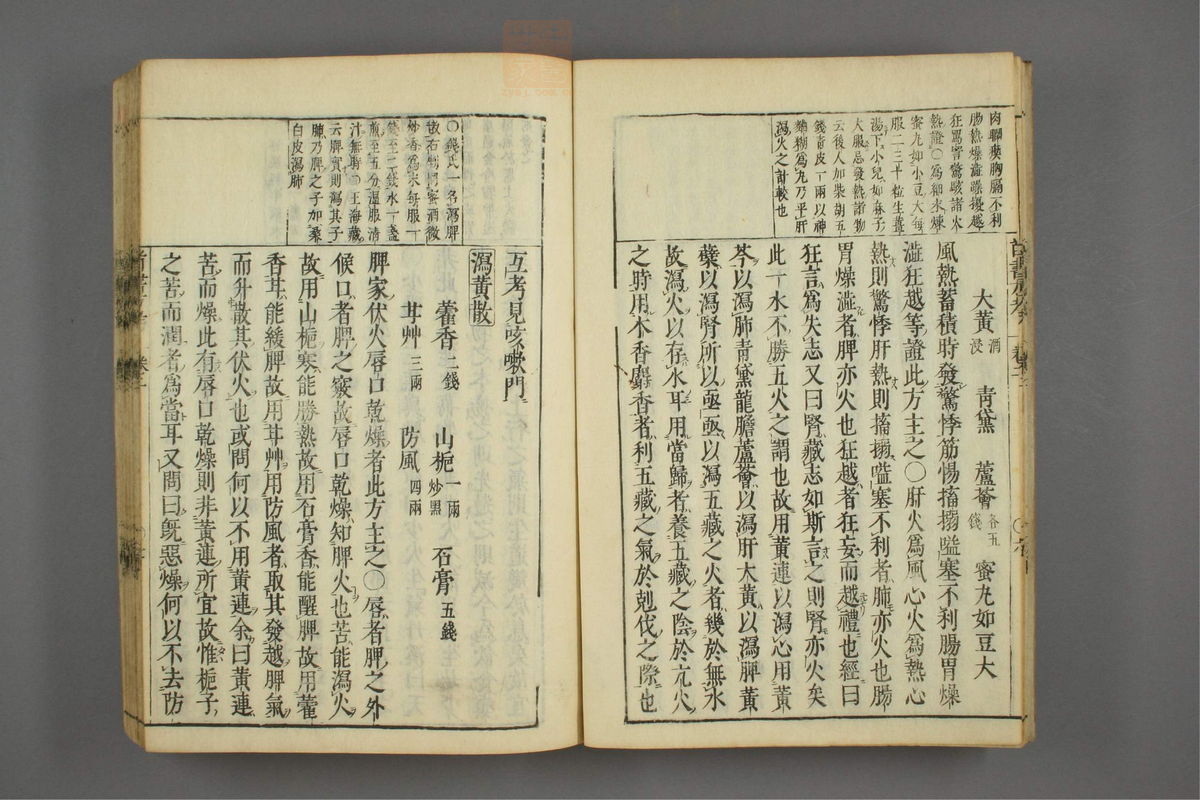 肉瞤瘈胸膈不利
腸熱燥澁躁擾越
狂罵詈驚駭諸火
熱證○爲細末煉
蜜丸如小豆大每
服二三十粒生薑
湯下小兒如麻子
大服忌發熱諸物
云後人加柴胡五
錢青皮一兩以神
麯糊爲丸乃平肝
瀉火之計較也
大黃 酒浸 青黛 蘆薈 各五錢 蜜丸如豆大
風熱蓄積時發驚悸筋惕搐搦嗌塞不利腸胃燥
澁狂越等證此方主之○肝火爲風心火爲熱心
熱則驚悸肝熱則搐搦嗌塞不利者肺亦火也腸
胃燥澁者脾亦火也狂越者狂妄而越禮也經曰
狂言爲失志又曰腎藏志如斯言之則腎亦火矣
此一水不勝五火之謂也故用黃連以瀉心用黃
芩以瀉肺青黛龍膽蘆薈以瀉肝大黃以瀉脾黃
蘗以瀉腎所以亟亟以瀉五藏之火者幾於無水
故瀉火以存水耳用當歸者養五藏之陰於亢火
之時用木香麝香者利五藏之氣於剋伐之際也
○錢氏一名瀉脾
散右剉同蜜酒微
炒香爲末每服一
錢至二錢水一盞
煎至五分溫服清
汁無時○王海藏
云脾實則瀉其子
肺乃脾之子加桑
白皮瀉肺
互考見咳嗽門
瀉黃散
藿香 二錢 山梔 一兩炒黑 石膏 五錢
甘艸 三兩 防風 四兩
脾家伏火唇口乾燥者此方主之○唇者脾之外
候口者脾之竅故唇口乾燥知脾火也苦能瀉火
故用山梔寒能勝熱故用石膏香能醒脾故用藿
香甘能緩脾故用甘艸用防風者取其發越脾氣
而升散其伏火也或問何以不用黃連余曰黃連
苦而燥此有唇口乾燥則非黃連所宜故惟梔子
之苦而潤者爲當耳又問曰旣惡燥何以不去防